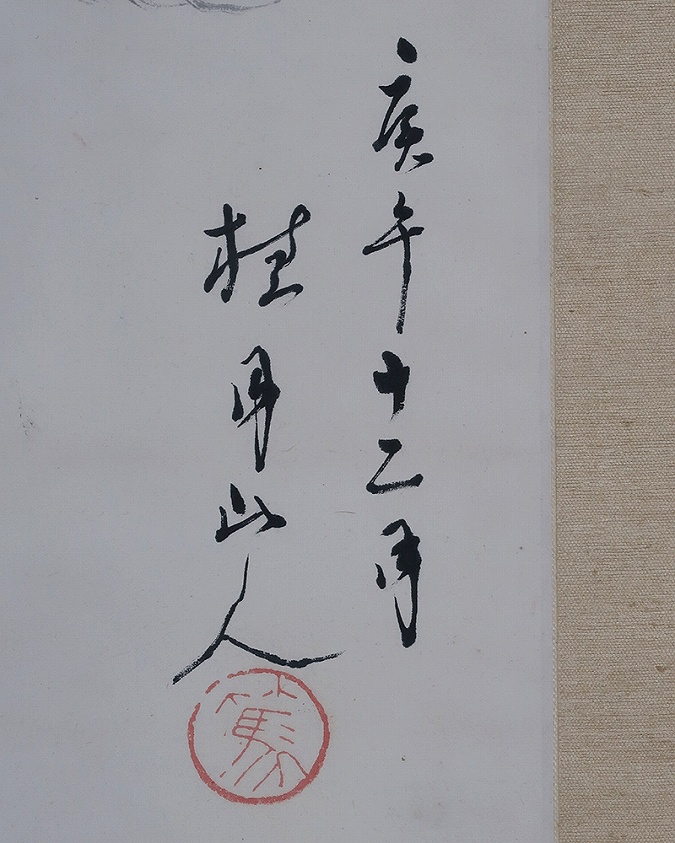 庚午十二月
桂月山人
篤